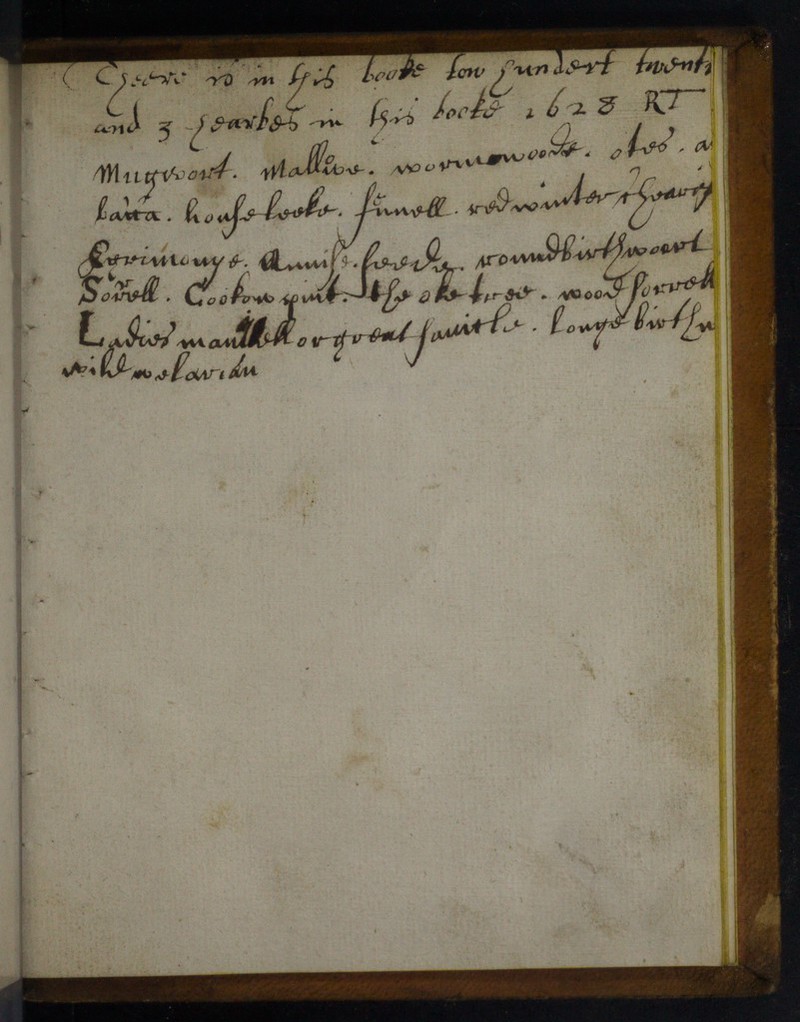 Theare is in this booke tow hundert twenti
and 3 hearbes in this booke 1628 RT
Mugwort. Mallowe. wormewoode. otes. a
houseleeke. funell. red winter cheary
Annise seede. round birthwoort
Sorrell. Cookow pint. the oke tree. wood sorrell
Ladies mantell or great sanicle. longe birthw
wild